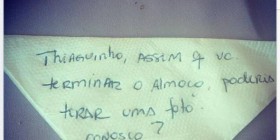 Thiaguinho, assim q vc
terminar o almoço, poderia
tirar uma foto
conosco?